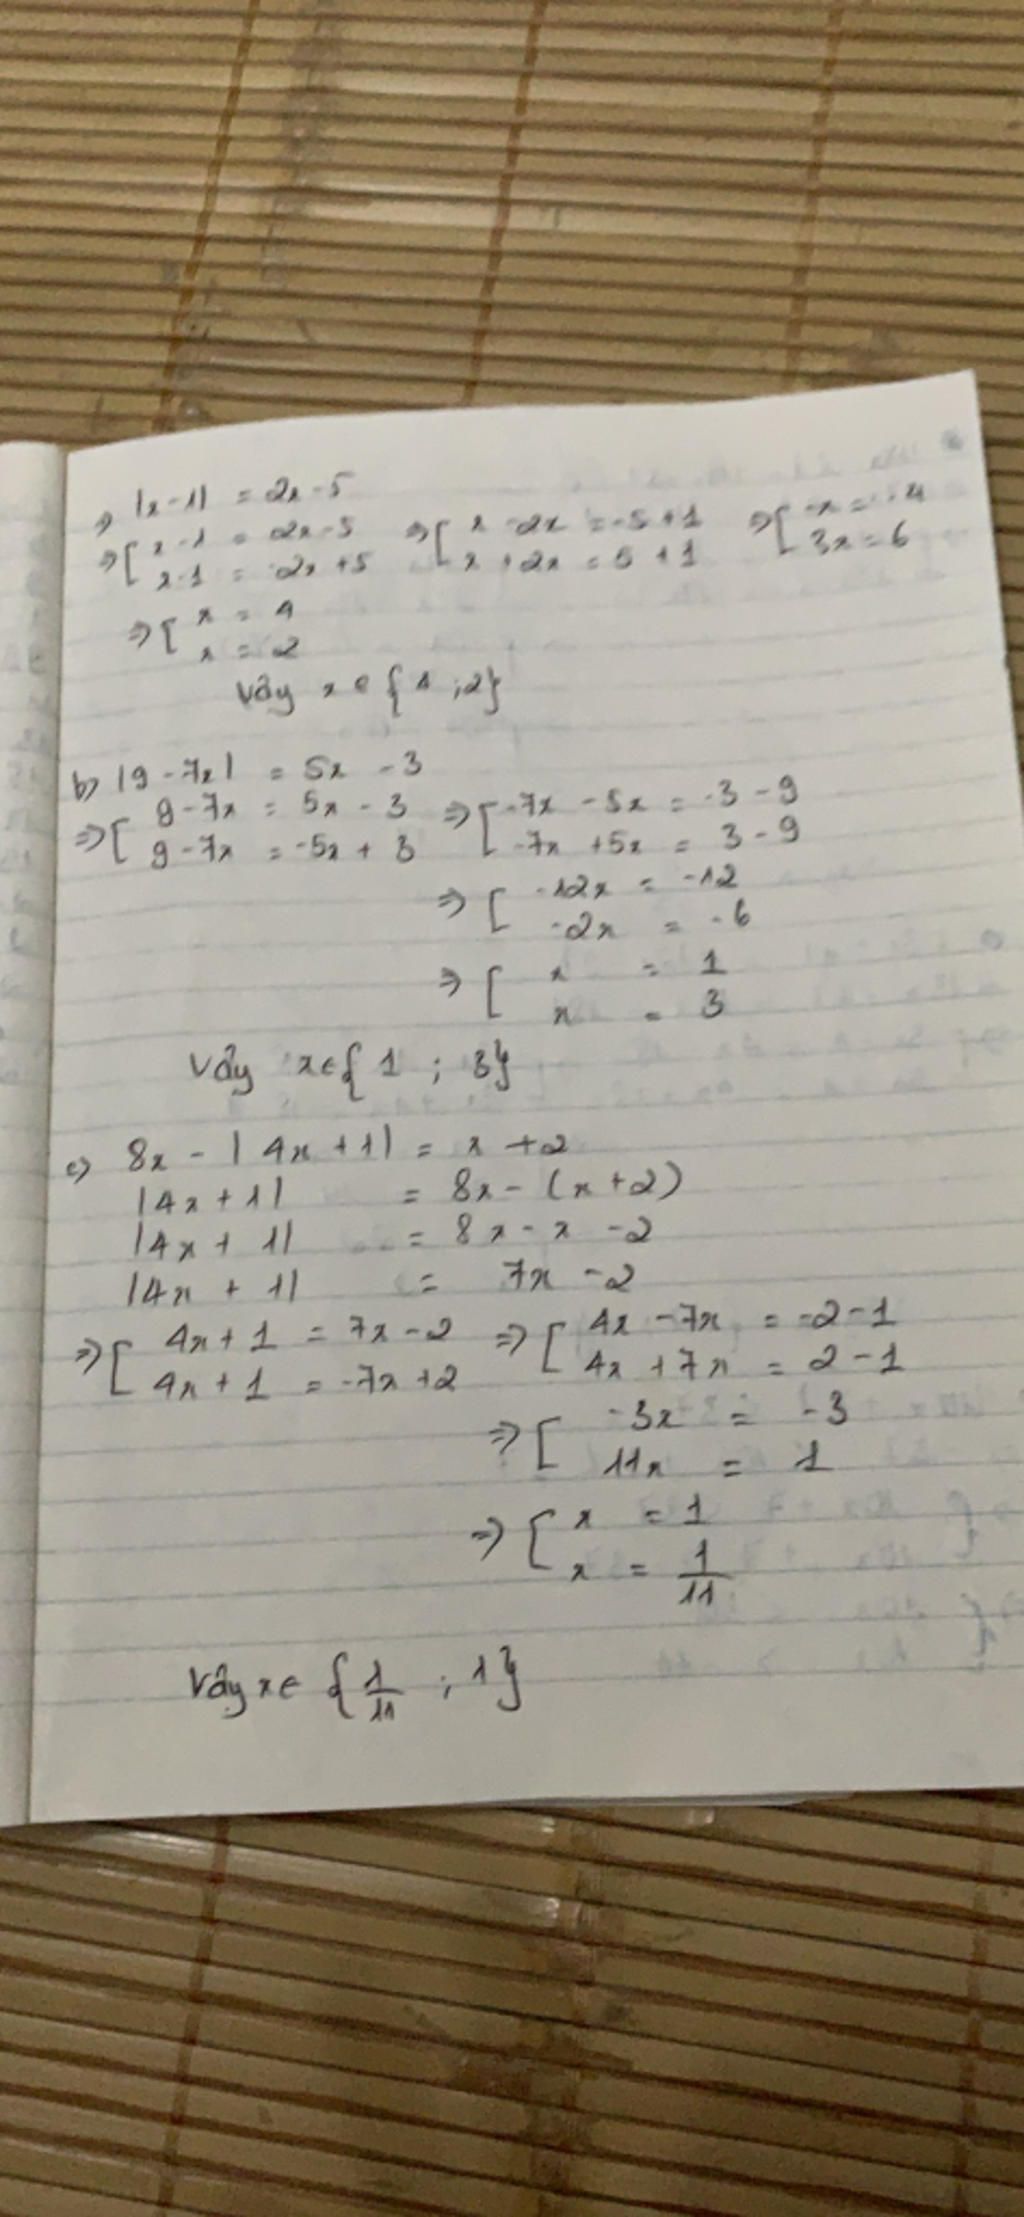 |x-1| = 2x-5
⇒ [ x-1 = 2x-5 ⇒ [ x -2x = -5+1 ⇒ [ -x = -4
x-1 = -2x+5 x+2x = 5+1 3x=6
⇒ [ x = 4
x = 2
Vậy x ∈ {4 ;2}
b) |9-7x| = 5x -3
⇒ [ 9-7x = 5x - 3 ⇒ [ -7x -5x = -3-9
9-7x = -5x + 3 -7x +5x = 3-9
⇒ [ -12x = -12
-2x = -6
⇒ [ x = 1
x = 3
Vậy x∈{ 1 ; 3}
c) 8x - |4x+1| = x +2
|4x+1| = 8x - (x+2)
|4x+ 1| = 8x - x -2
|4x + 1| = 7x -2
⇒ [ 4x+1 = 7x-2 ⇒ [ 4x -7x = -2-1
4x+1 = -7x+2 4x +7x = 2-1
⇒ [ -3x = -3
11x = 1
⇒ [ x = 1
x = 1/11
Vậy x∈ {1/11 ; 1}